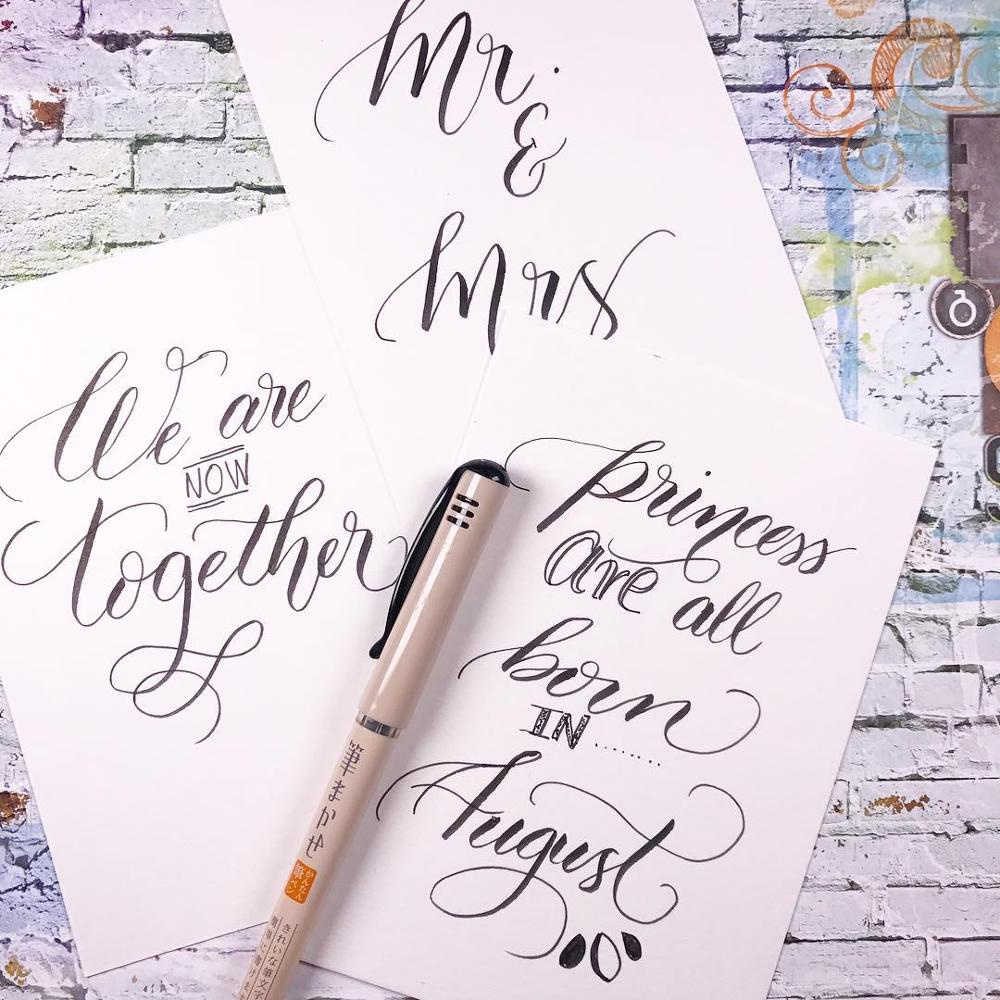 Mr.
&
Mrs
We are
NOW
together
princess
are all
born
IN........
August
筆まかせ
かんたん
筆ペン
きれいな筆文字